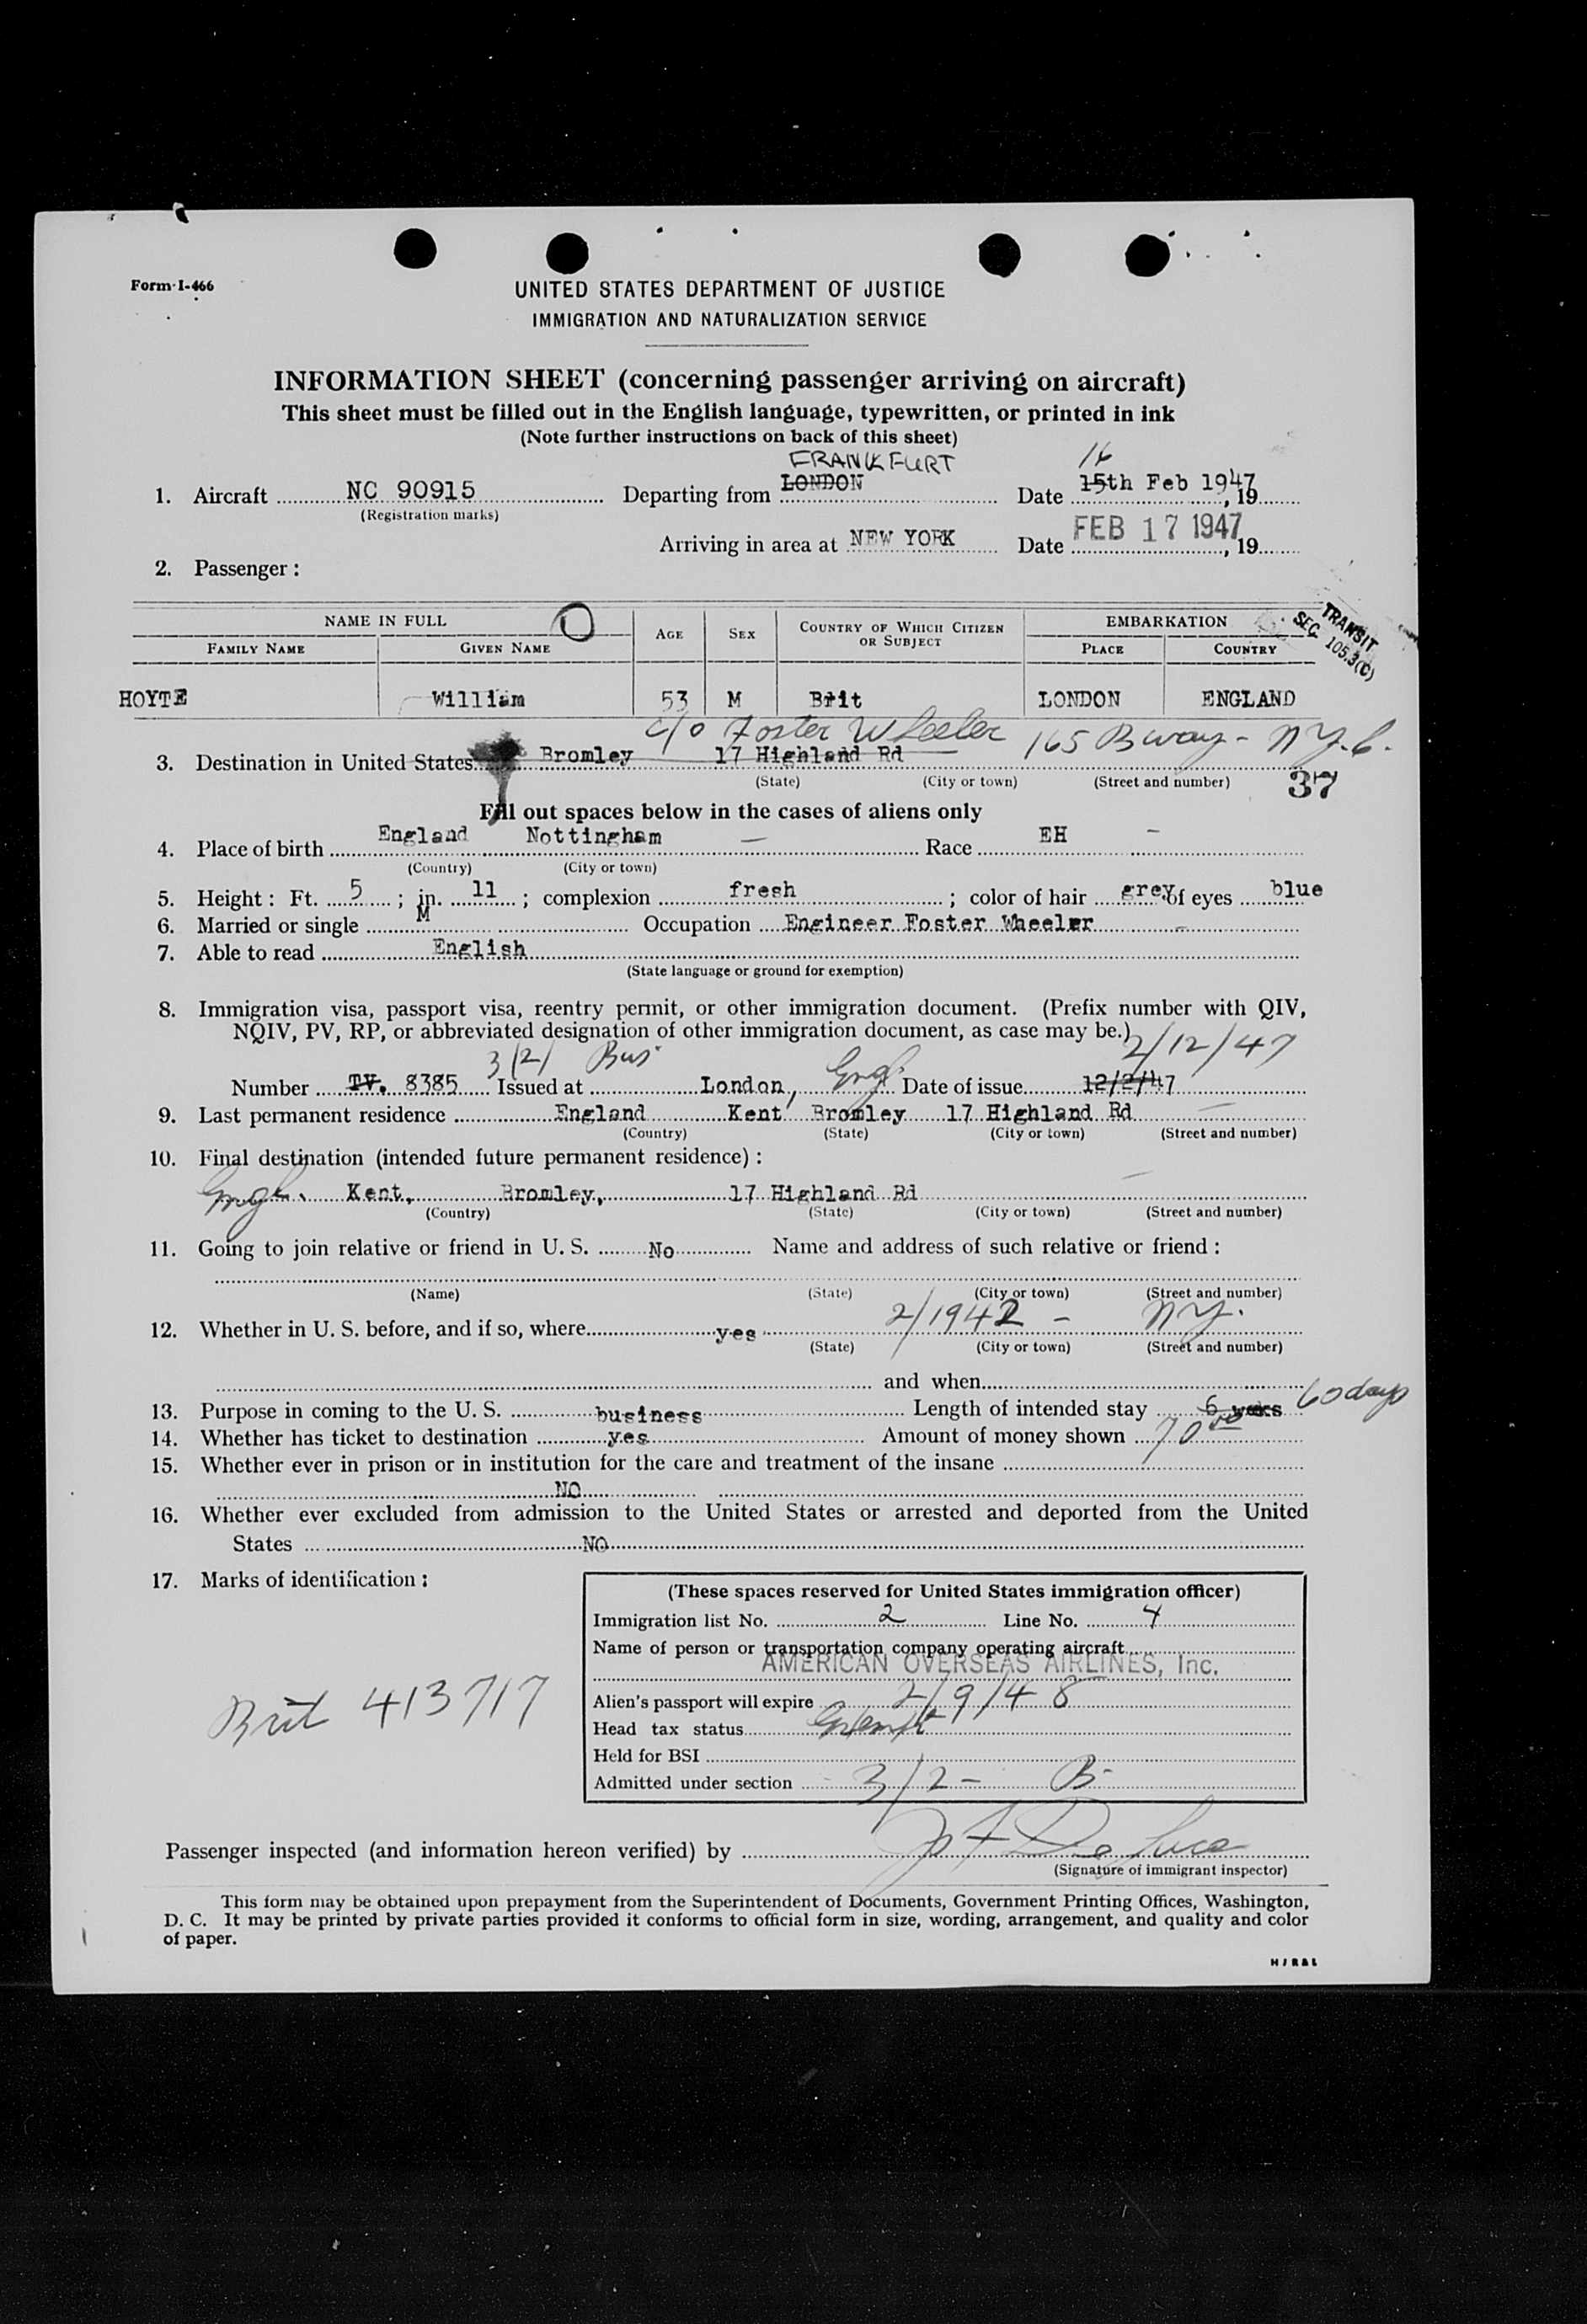 Form I-466
UNITED STATES DEPARTMENT OF JUSTICE
IMMIGRATION AND NATURALIZATION SERVICE
INFORMATION SHEET (concerning passenger arriving on aircraft)
This sheet must be filled out in the English language, typewritten, or printed in ink
(Note further instructions on back of this sheet)
FRANKFURT 16
1. Aircraft NC 90915 Departing from LONDON Date 15th Feb 1947, 19
(Registration marks)
Arriving in area at NEW YORK Date FEB 17 1947, 19
2. Passenger:
TRANSIT
SEC. 105.3(C)
NAME IN FULL AGE SEX COUNTRY OF WHICH CITIZEN OR SUBJECT EMBARKATION
FAMILY NAME GIVEN NAME PLACE COUNTRY
HOYTE William 53 M Brit LONDON ENGLAND
c/o Foster Wheeler 165 Bway - N.Y.C.
3. Destination in United States Bromley 17 Highland Rd
(State) (City or town) (Street and number) 37
Fill out spaces below in the cases of aliens only
4. Place of birth England Nottingham — Race EH —
(Country) (City or town)
5. Height: Ft. 5; in. 11; complexion fresh; color of hair grey of eyes blue
6. Married or single M Occupation Engineer Foster Wheeler
7. Able to read English
(State language or ground for exemption)
8. Immigration visa, passport visa, reentry permit, or other immigration document. (Prefix number with QIV,
NQIV, PV, RP, or abbreviated designation of other immigration document, as case may be.)
3(2) Bus. 2/12/47
Number TV. 8385 Issued at London, Engl. Date of issue 12/2/47
9. Last permanent residence England Kent Bromley 17 Highland Rd
(Country) (State) (City or town) (Street and number)
10. Final destination (intended future permanent residence):
Engl. Kent, Bromley, 17 Highland Rd
(Country) (State) (City or town) (Street and number)
11. Going to join relative or friend in U. S. No Name and address of such relative or friend:
(Name) (State) (City or town) (Street and number)
12. Whether in U. S. before, and if so, where yes 2/1942 - N.Y.
(State) (City or town) (Street and number)
and when
13. Purpose in coming to the U. S. business Length of intended stay 6 weeks 60 days
14. Whether has ticket to destination yes Amount of money shown 70 00
15. Whether ever in prison or in institution for the care and treatment of the insane
NO
16. Whether ever excluded from admission to the United States or arrested and deported from the United
States NO
17. Marks of identification:
Brit 413717
(These spaces reserved for United States immigration officer)
Immigration list No. 2 Line No. 4
Name of person or transportation company operating aircraft
AMERICAN OVERSEAS AIRLINES, Inc.
Alien's passport will expire 2/9/48
Head tax status Exempt
Held for BSI
Admitted under section 3/2 - B-
Passenger inspected (and information hereon verified) by De Luca
(Signature of immigrant inspector)
This form may be obtained upon prepayment from the Superintendent of Documents, Government Printing Offices, Washington,
D. C. It may be printed by private parties provided it conforms to official form in size, wording, arrangement, and quality and color
of paper.